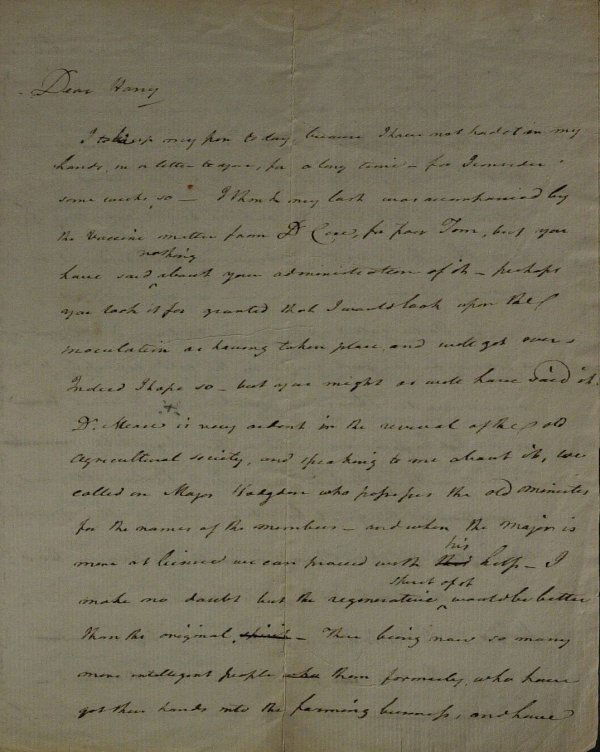 Dear Harry
I take up my pen to day, because I have not had it in my
hands, in a letter to you, for a long time - for I consider
some weeks, so - I think my last was accompanied by
the vaccine matter from Dr Coxe, for poor Tom, but you
have said nothing about your administration of it - perhaps
you took it for granted that I would look upon the
inoculation as having taken place and well got over -
Indeed I hope so - but you might as well have said it.
Dr. Mease is very ardent in the revival of the old
Agricultural society, and speaking to me about it, we
called on Major Hodgdon who possesses the old minutes
for the names of the members - and when the Major is
more at leisure we can proceed with his help - I
make no doubt but the regenerative spirit of it would be better
than the original spirit - There being now so many
more intelligent people than formerly, who have
got their hands into the farming business, and have